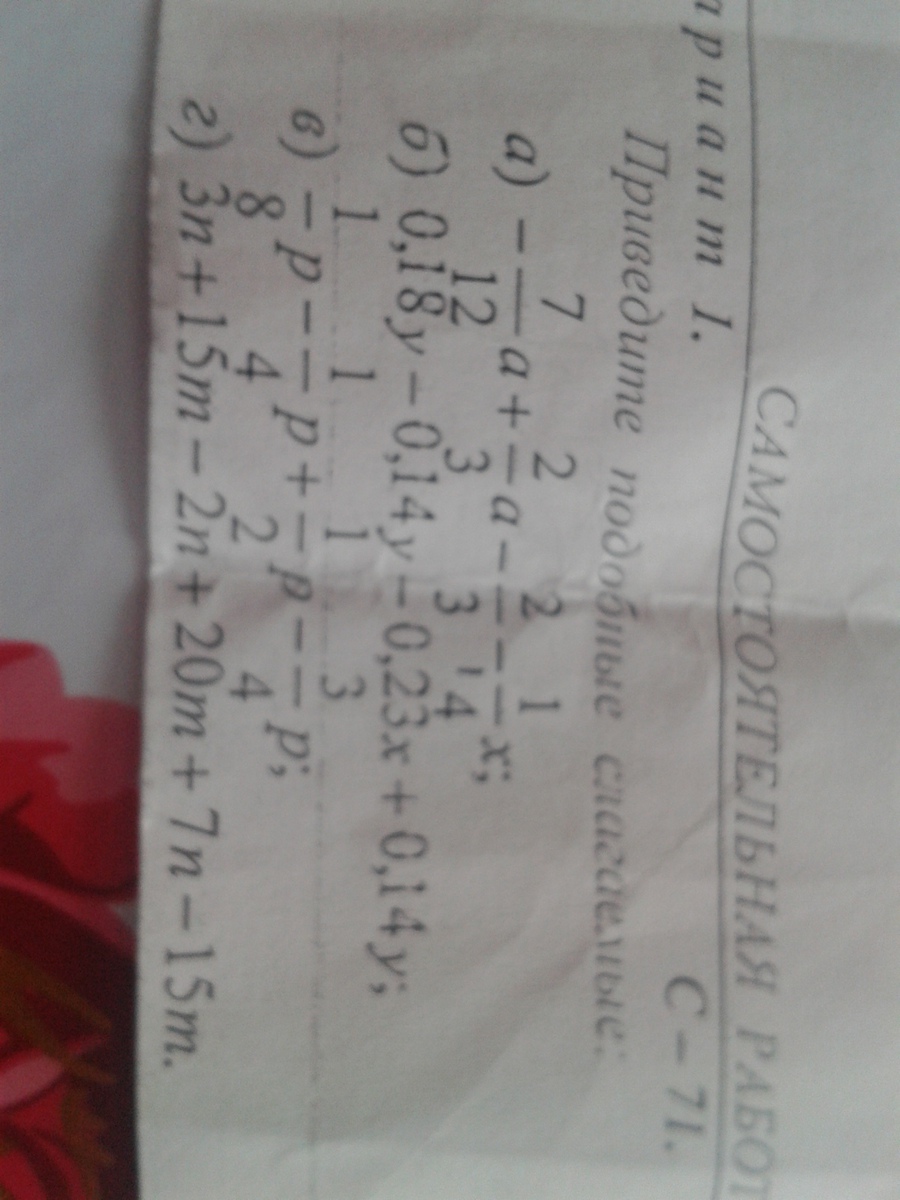 САМОСТОЯТЕЛЬНАЯ РАБОТ
С – 71.
риант 1.
Приведите подобные слагаемые:
а) – 7/12 a + 2/3 a – 2/3 – 1/4 x;
б) 0,18y – 0,14y – 0,23x + 0,14y;
в) 1/8 p – 1/4 p + 1/2 p – 3/4 p;
г) 3n + 15m – 2n + 20m + 7n – 15m.